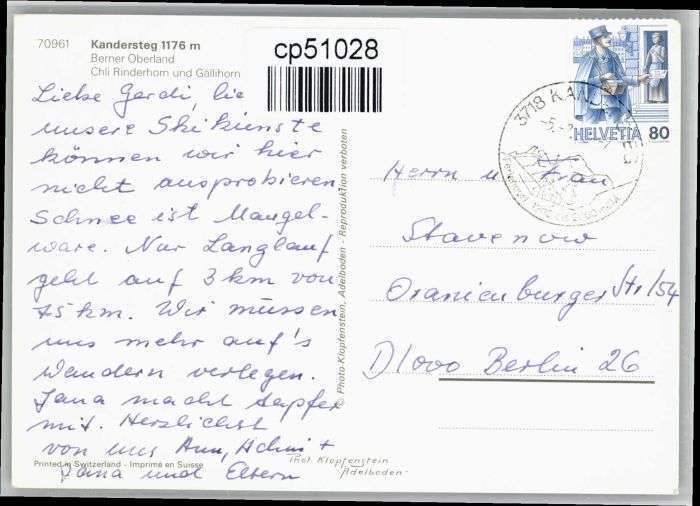 70961 Kandersteg 1176 m
Berner Oberland
Chli Rinderhorn und Gällihorn
cp51028
Liebe Gerdi, die
unsere Skikünste
können wir hier
nicht ausprobieren
Schnee ist Mangel-
ware. Nur Langlauf
geht auf 3 km von
75 km. Wir müssen
uns mehr auf's
Wandern verlegen.
Jana macht tapfer
mit. Herzlichst
von uns Ann, +
Jana und Eltern
Printed in Switzerland - Imprimé en Suisse
Photo Klopfenstein, Adelboden - Reproduktion verboten
Phot. Klopfenstein
Adelboden
HELVETIA 80
3718 KANDERSTEG
Herrn u. Frau
Stavenow
Oranienburger Str/54
D1000 Berlin 26